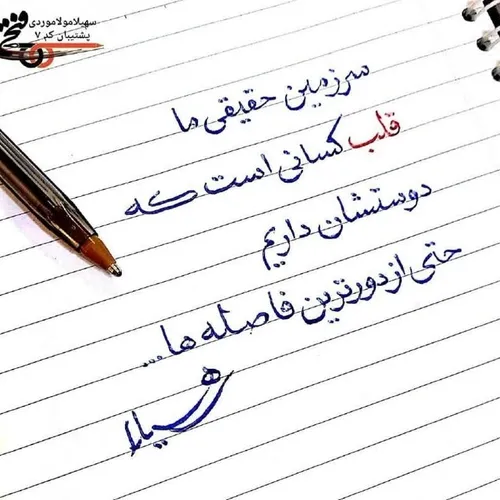 سهیلا مولاموردی
پشتیبان کد ۷
سرزمین حقیقی ما
قلب کسانی است که
دوستشان داریم
حتی از دورترین فاصله ها...
سهیلا